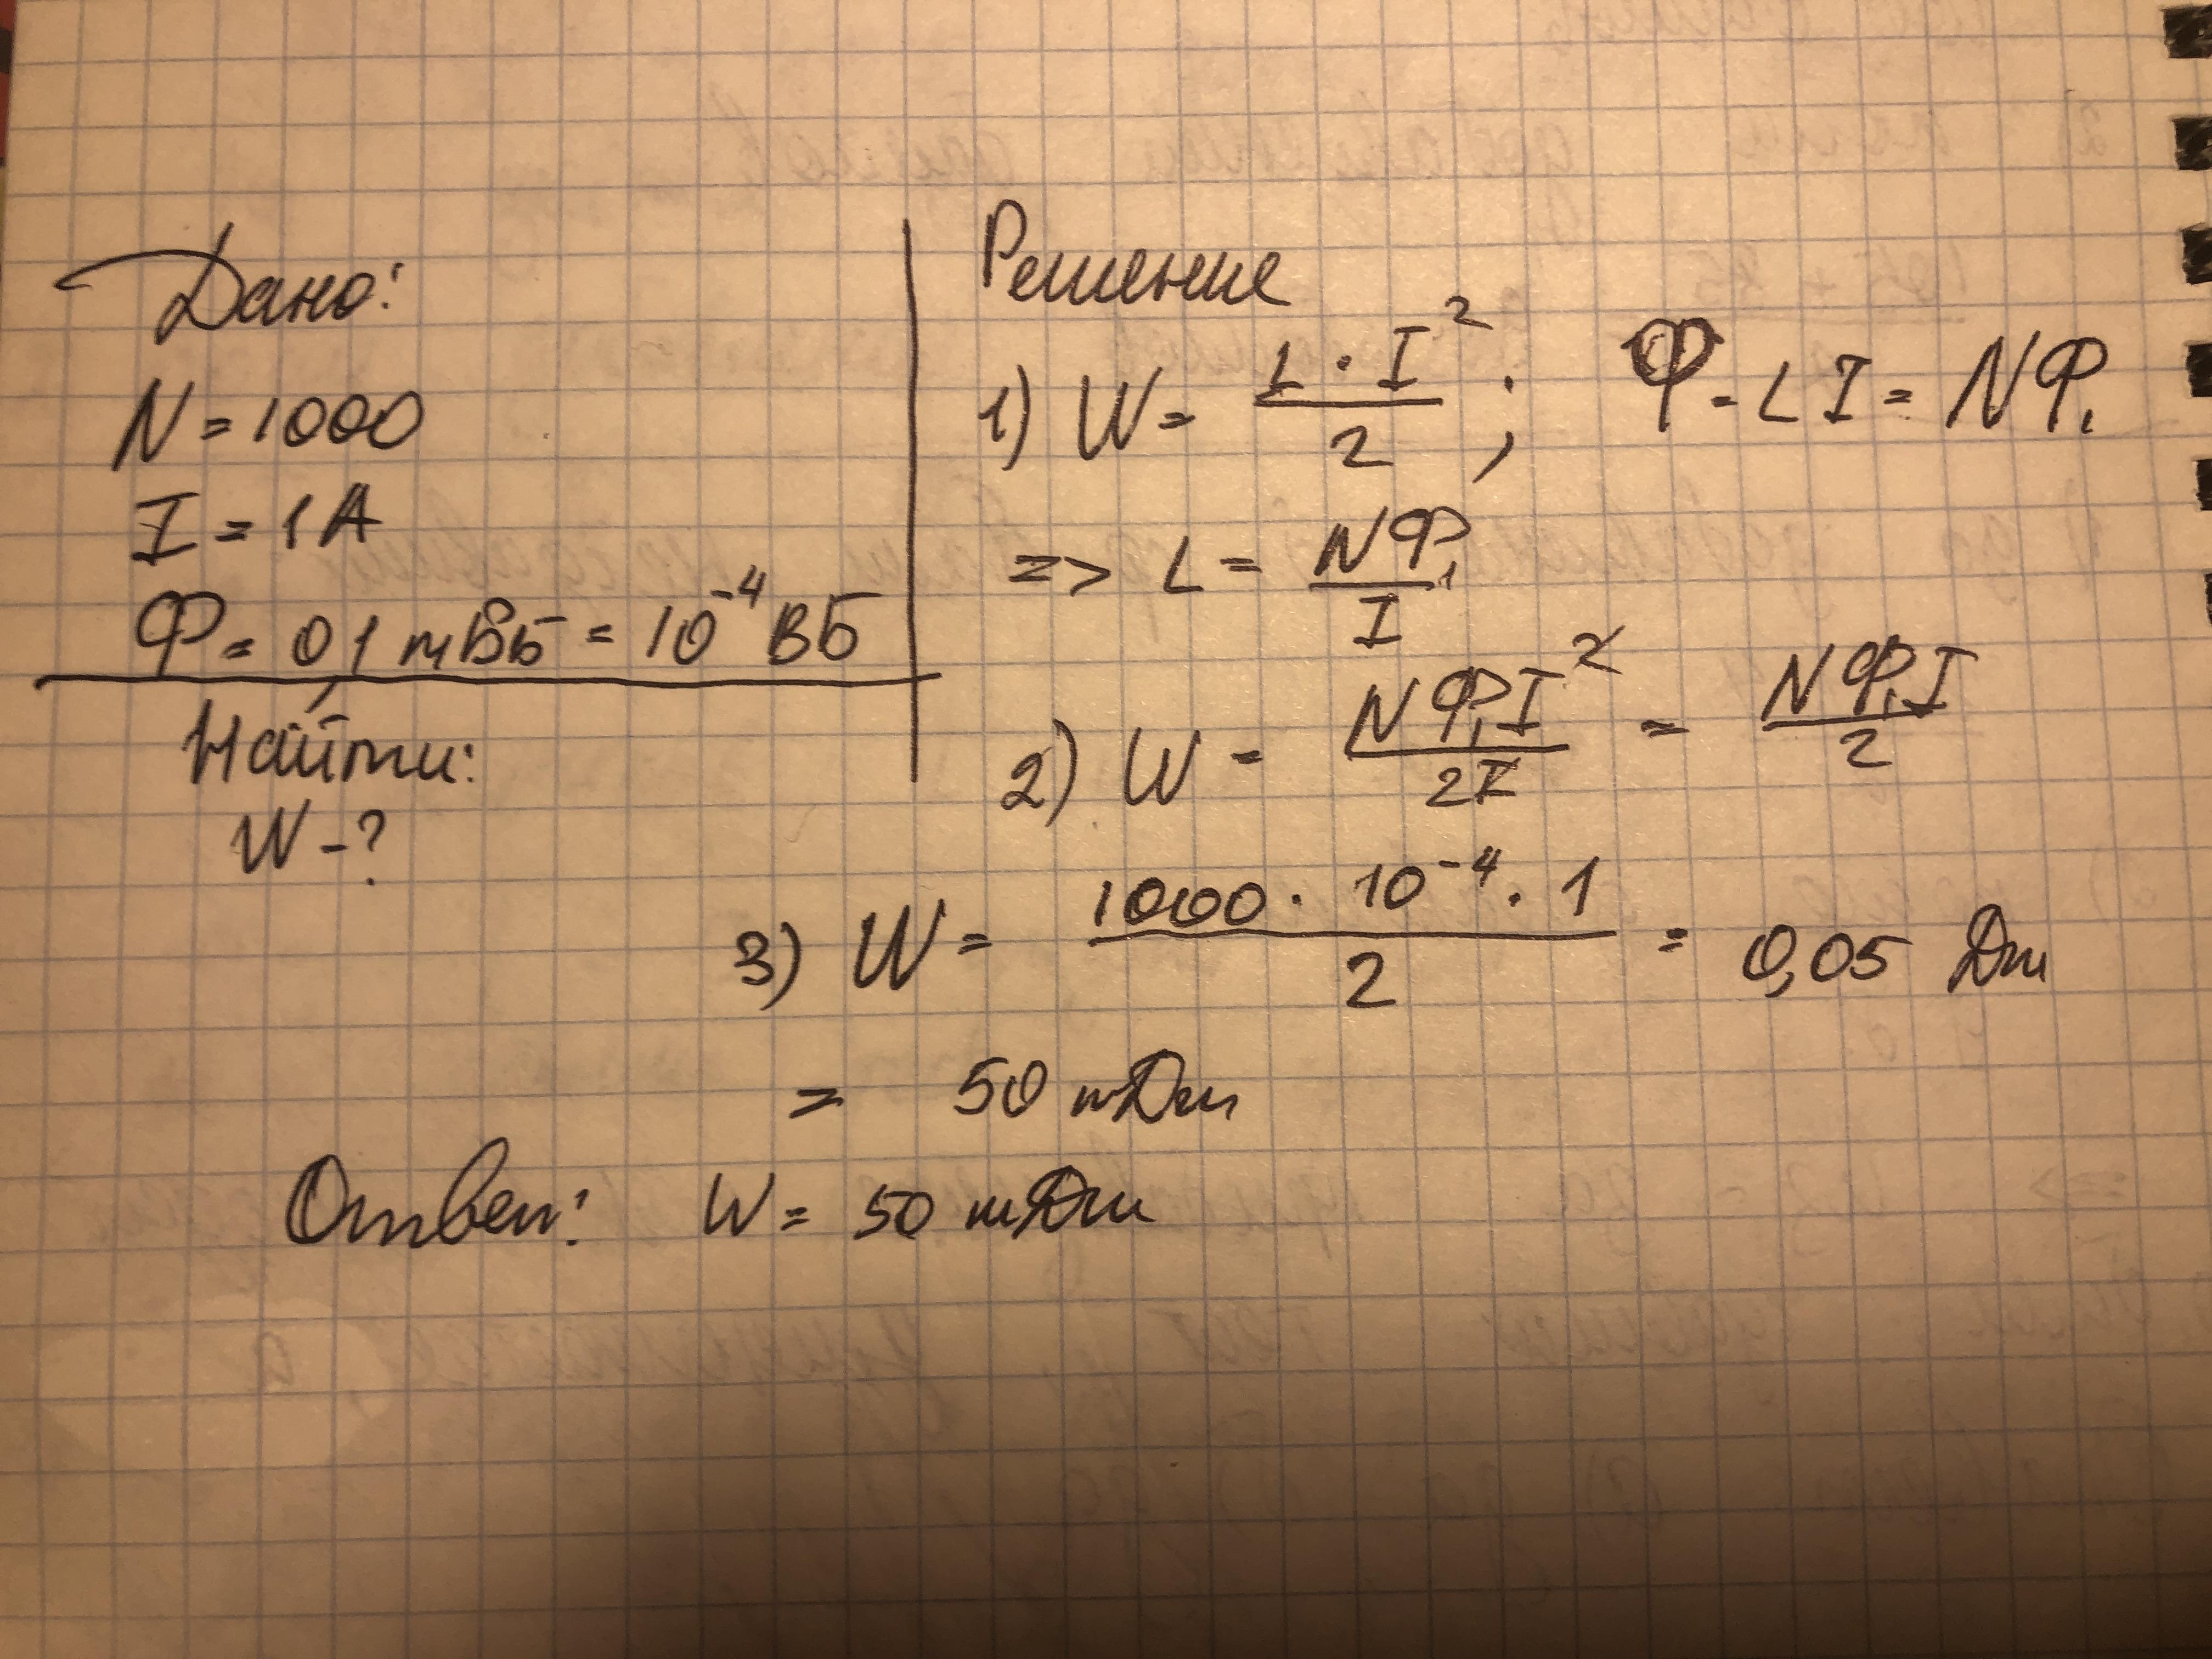 Дано:
N = 1000
I = 1 А
Ф = 0,1 мВб = 10⁻⁴ Вб
Найти:
W - ?
Решение
1) W = L · I² / 2 ; Ф = LI = NФ₁
=> L = NФ₁ / I
2) W = NФ₁I² / 2I = NФ₁I / 2
3) W = 1000 · 10⁻⁴ · 1 / 2 = 0,05 Дж
= 50 мДж
Ответ: W = 50 мДж